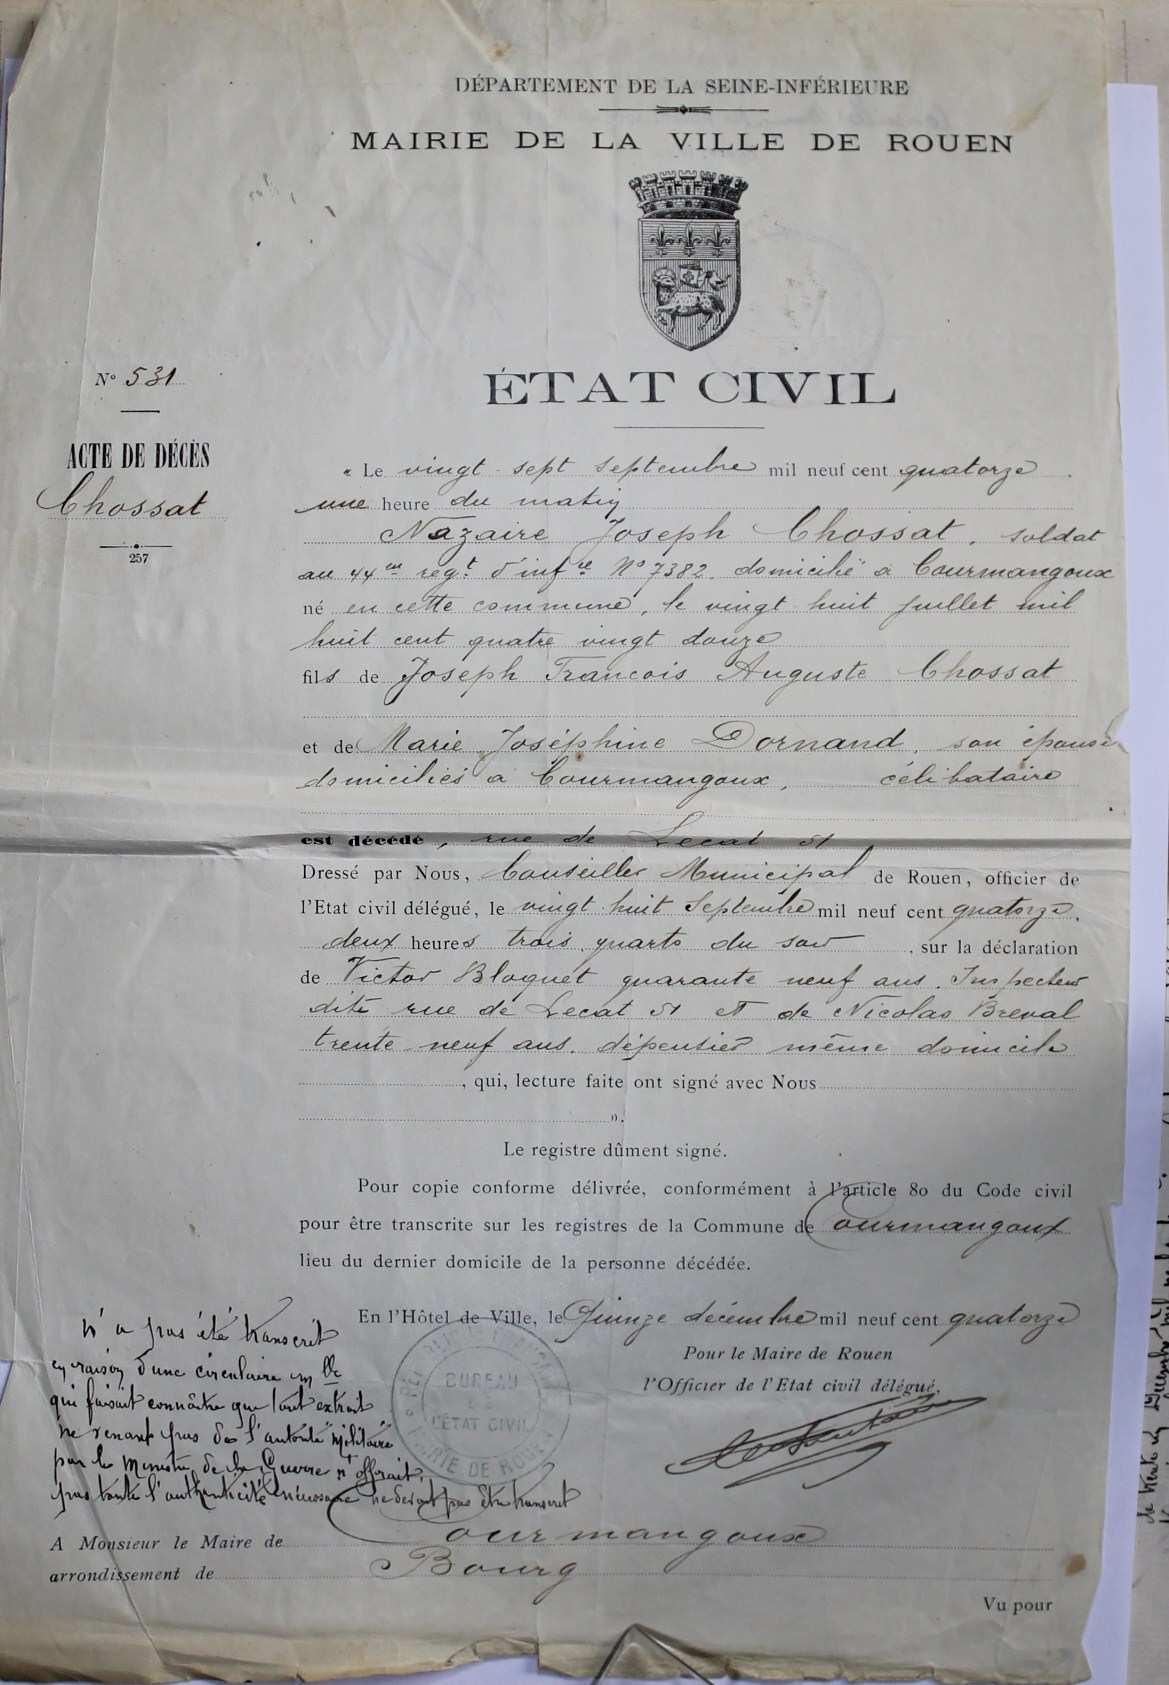 DÉPARTEMENT DE LA SEINE-INFÉRIEURE
MAIRIE DE LA VILLE DE ROUEN
N° 531
ÉTAT CIVIL
ACTE DE DÉCÈS
Chossat
257
« Le vingt-sept septembre mil neuf cent quatorze
une heure du matin
Nazaire Joseph Chossat, soldat
au 44me regt. d'infre No 7382. domicilié à Courmangoux
né en cette commune, le vingt huit juillet mil
huit cent quatre vingt douze
fils de Joseph Francois Auguste Chossat
et de Marie Joséphine Dornand, son épouse
domiciliés à Courmangoux, célibataire
est décédé, rue de Lecat 51
Dressé par Nous, Conseiller Municipal de Rouen, officier de
l'Etat civil délégué, le vingt huit Septembre mil neuf cent quatorze,
deux heures trois quarts du soir, sur la déclaration
de Victor Bloquet quarante neuf ans. Inspecteur
dite rue de Lecat 51 et de Nicolas Breval
trente neuf ans. dépensier même domicile
, qui, lecture faite ont signé avec Nous
».
Le registre dûment signé.
Pour copie conforme délivrée, conformément à l'article 80 du Code civil
pour être transcrite sur les registres de la Commune de Courmangoux
lieu du dernier domicile de la personne décédée.
En l'Hôtel de Ville, le Quinze décembre mil neuf cent quatorze
Pour le Maire de Rouen
l'Officier de l'Etat civil délégué,
BUREAU
L'ÉTAT CIVIL
MAIRIE DE ROUEN
N'a pas été transcrit
en raison d'une circulaire mlle
qui faisait connaître que tout extrait
ne venant pas de l'autorité "militaire"
par le Ministre de la Guerre n'offrait,
pas toute l'authenticité nécessaire ne devait pas être transcrit
A Monsieur le Maire de Courmangoux
arrondissement de Bourg
Vu pour